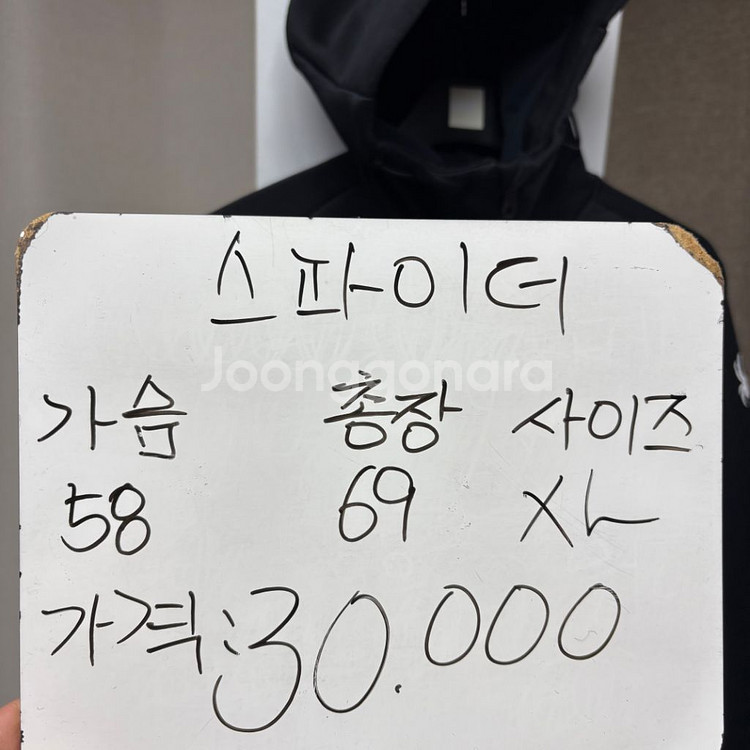 스파이더
Joonggonara
가슴 총장 사이즈
58 69 XL
가격:30.000